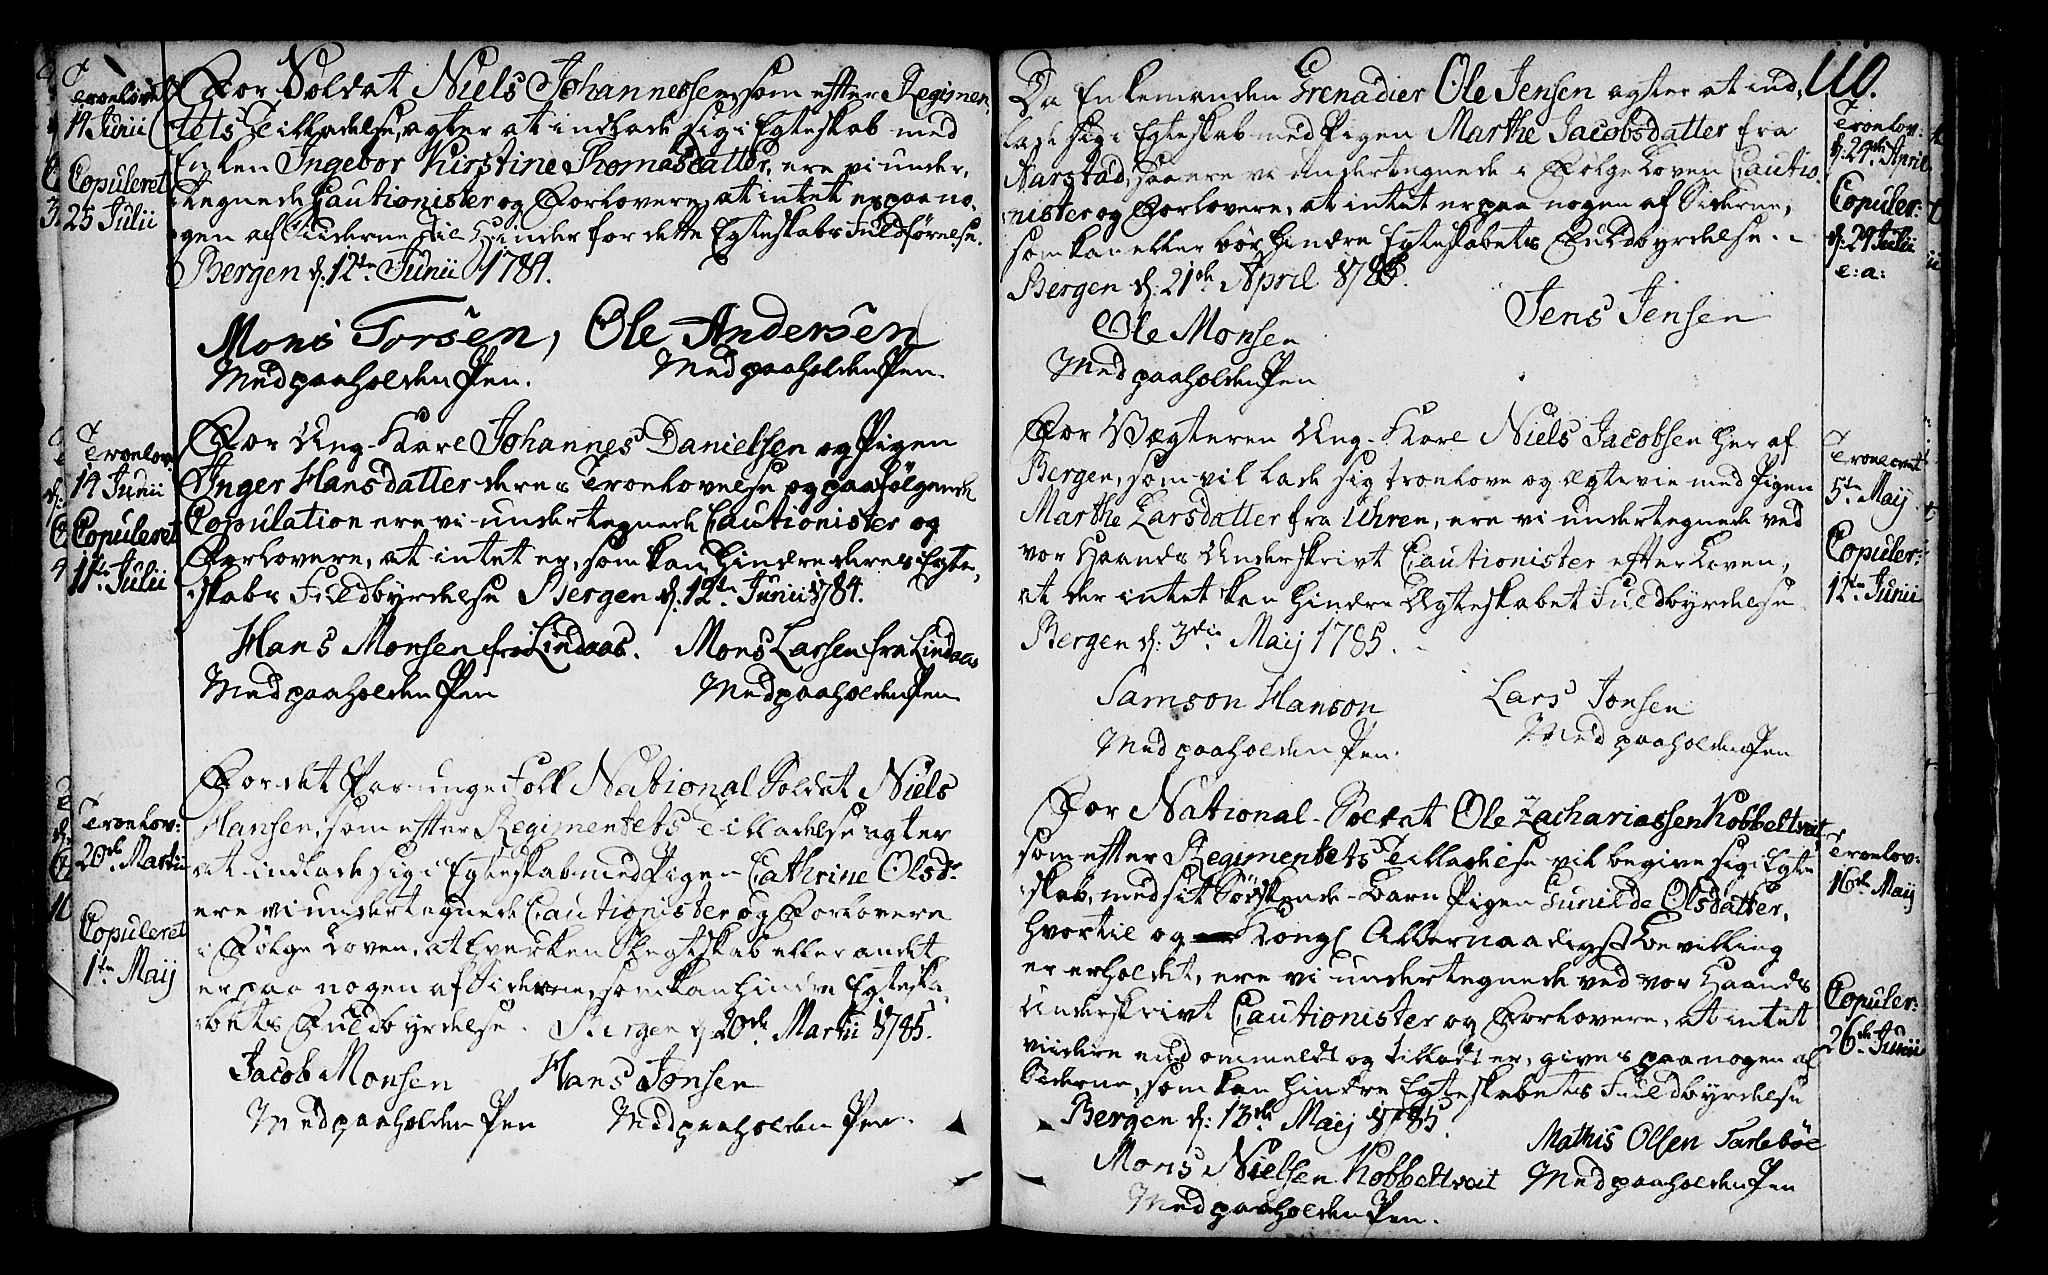 Troelov.
14 Junii
Copuleret
25 Julii
For Soldat Niels Johannessen, som efter Regimen-
tets Tilladelse, agter at indlade sig i Egteskab med
Enken Ingebor Kirstine Thomasdatter, ere vi under-
tegnede Cautionister og Forlovere, at intet er paa no-
gen af Siderne til Hinder for dette Egteskabs Fuldförelse.
Bergen d: 12te Junii 1784.
Mons Torsen, Ole Andersen
Med paaholden Pen. Med paaholden Pen.
Troelov:
14 Junii
Copuleret
11te Julii
For Ung-Karl Johannes Danielsen og Pigen
Inger Hansdatter deres Troelovelse og paafölgende
Copulation ere vi undertegnede Cautionister og
Forlovere, at intet er, som kan hindre deres Egte-
skabs Fuldbyrdelse Bergen d: 12te Junii 1784.
Hans Monsen fra Lindaas. Mons Larsen fra Lindaas
Med paaholden Pen Med paaholden Pen
Troelov:
20de Martii
Copuleret
1te Maij
For det Par unge Folk National Soldat Niels
Hansen, som efter Regimentets Tilladelse agter
at indlade sig i Egteskab med Pigen Cathrine Olsdr
ere vi undertegnede Cautionister og Forlovere
i Fölge Loven, at hverken Slegtskab eller andet
er paa nogen af Siderne, som kan hindre Egteska-
bets Fuldbyrdelse. Bergen d 20de Martii 1785.
Jacob Monsen Hans Jonsen
Med paaholden Pen Med paaholden Pen.
110.
Da Enkemanden Grenadier Ole Jensen agter at ind-
lade sig i Egteskab med Pigen Marthe Jacobsdatter fra
Aarstad, saa ere vi undertegnede i Fölge Loven Cautio-
nister og Forlovere, at intet er paa nogen af Siderne,
som kan eller bör hindre Egteskabets Fuldbyrdelse.
Bergen d: 21de April 1785.
Jens Jensen
Ole Monsen
Med paaholden Pen
Troelov:
d: 21de April
Copuler:
d: 29 Julii
e: a:
For Vægteren Ung-Karl Niels Jacobsen her af
Bergen, som vil lade sig troelove og ægtevie med Pigen
Marthe Larsdatter fra Uhren, ere vi undertegnede ved
vor Haands Underskrivt Cautionister efter Loven,
at der intet kan hindre Ægteskabet Fuldbyrdelse
Bergen d: 3die Maij 1785.
Samson Hanson Lars Jonsen
Med paaholden Pen. Med paaholden Pen
Troelovet
5te Maij
Copuler:
12te Junii
For National-Soldat Ole Zachariassen Kobbeltveit,
som efter Regimentets Tilladelse vil begive sig i Egte
skab, med sit Södskende-Barn Pigen Gunilde Olsdatter,
hvortil og Kongl Allernaadigst bevilling
er erholdet, ere vi undertegnede ved vor Haands
Underskrivt Cautionister og Forlovere, at intet
viidere end ommeldt og tilladt er, gives paa nogen af
Siderne, som kan hindre Egteskabets Fuldbyrdelse
Bergen d: 13de Maij 1785.
Mathis Olsen Tarlebøe
Mons Nielsen Kobbeltveit Med paaholden Pen
Med paaholden Pen.
Troelov:
16de Maij
Copuler:
26de Junii